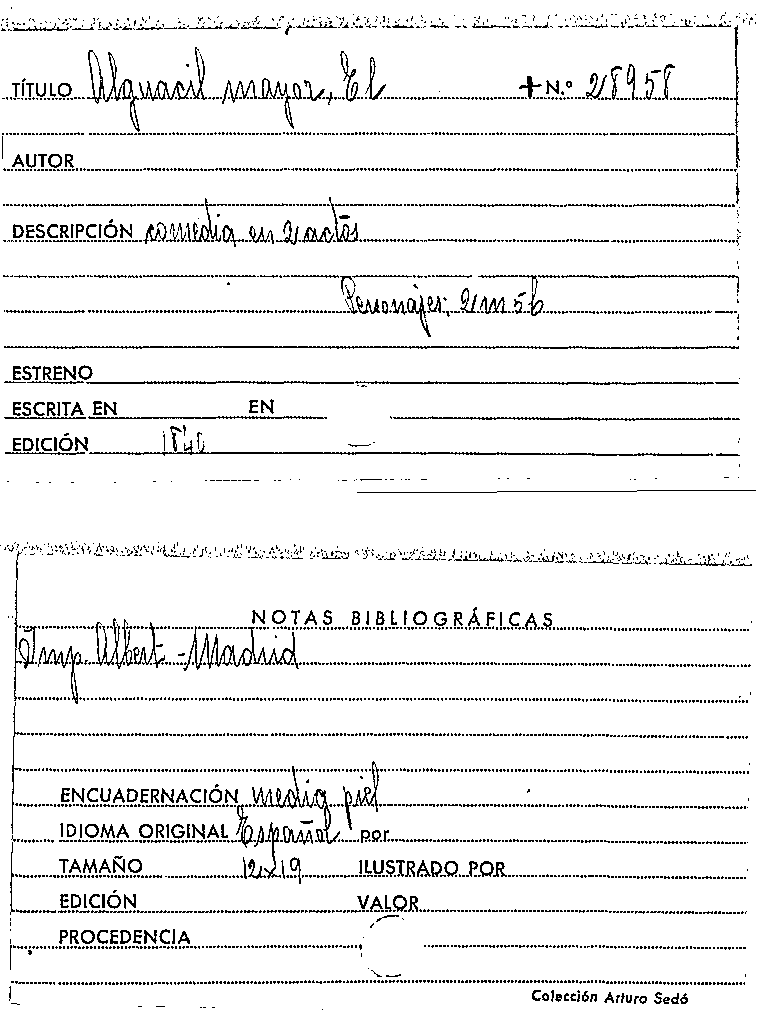 TÍTULO Alguacil mayor, El + N.º 28958
AUTOR
DESCRIPCIÓN comedia en 2 actos
Personajes: 2 m 5 h
ESTRENO
ESCRITA EN EN
EDICIÓN 1840
NOTAS BIBLIOGRÁFICAS
Imp. Albert - Madrid
ENCUADERNACIÓN media piel
IDIOMA ORIGINAL Español por
TAMAÑO 12x19 ILUSTRADO POR
EDICIÓN VALOR
PROCEDENCIA
Colección Arturo Sedó